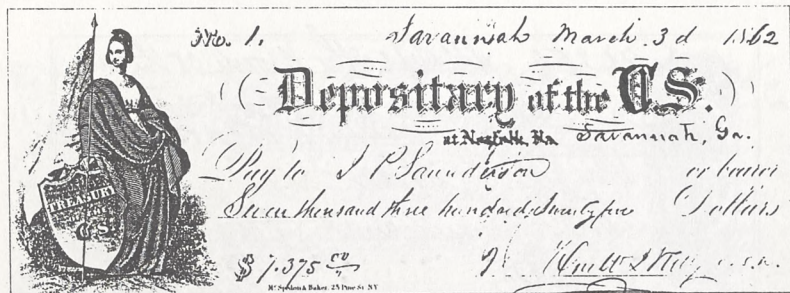 No. 1. Savannah March 3d 1862
Depositary of the C.S.
at Norfolk, Va Savannah, Ga.
Pay to J P Saunderson or bearer
Seven thousand three hundred seventy five Dollars
TREASURY
C.S.
$ 7.375 00
Mc Spedon & Baker, 25 Pine St. N.Y